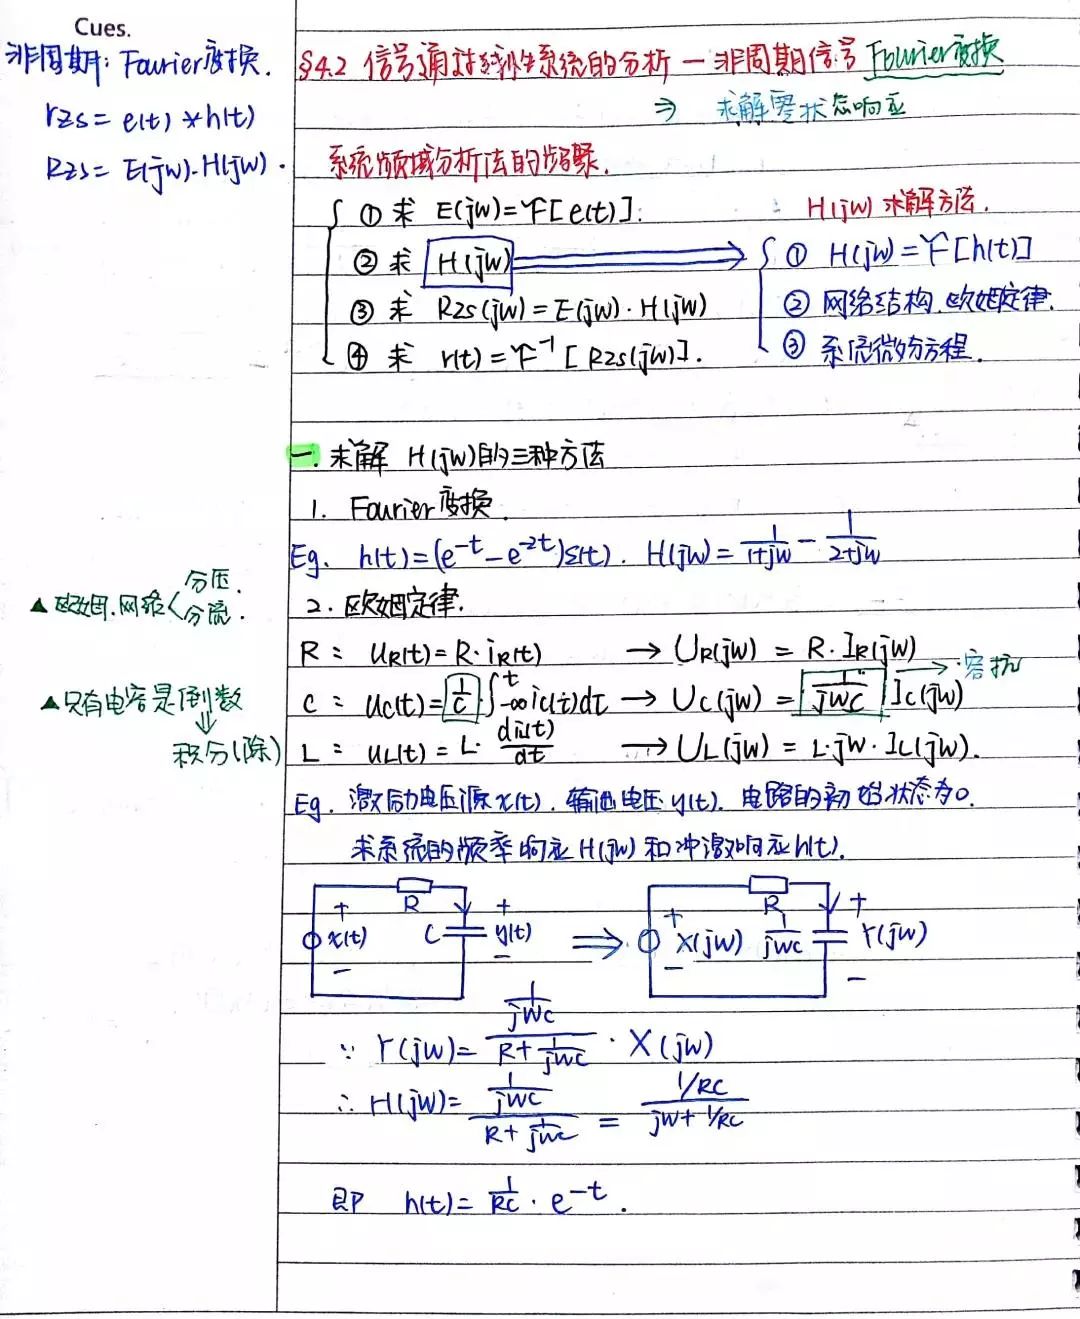 Cues.
非周期: Fourier变换.
rzs = e(t) * h(t)
Rzs = E(jw)·H(jw).
§4.2 信号通过线性系统的分析 — 非周期信号 Fourier变换
⇒ 求解零状态响应
系统频域分析法的步骤.
① 求 E(jw)=F[e(t)].
② 求 H(jw)
③ 求 Rzs(jw)=E(jw)·H(jw)
④ 求 r(t)=F⁻¹[Rzs(jw)].
H(jw) 求解方法.
① H(jw)=F[h(t)]
② 网络结构.欧姆定律.
③ 系统微分方程.
一. 求解 H(jw)的三种方法
1. Fourier变换.
Eg. h(t)=(e^-t - e^-2t)ε(t). H(jw)= 1/(1+jw) - 1/(2+jw)
▲ 欧姆.网络< 分压. 分流.
2. 欧姆定律.
R: uR(t)=R·iR(t) → UR(jw) = R·IR(jw)
C: uc(t)= 1/c ∫_-∞^t ic(t)dt → Uc(jw) = 1/jwc Ic(jw) → 容抗
L: uL(t) = L· diL(t)/dt → UL(jw) = L·jw·IL(jw).
▲只有电容是倒数
⇓
积分(除)
Eg. 激励电压源x(t). 输出电压y(t). 电路的初始状态为0.
求系统的频率响应H(jw)和冲激响应h(t).
+ x(t) - R C + y(t) - ⇒ + X(jw) - R 1/jwc + Y(jw) -
∵ Y(jw)= (1/jwc)/(R+1/jwc) · X(jw)
∴ H(jw)= (1/jwc)/(R+1/jwc) = (1/RC)/(jw+1/RC)
即 h(t)= 1/RC · e^-t.